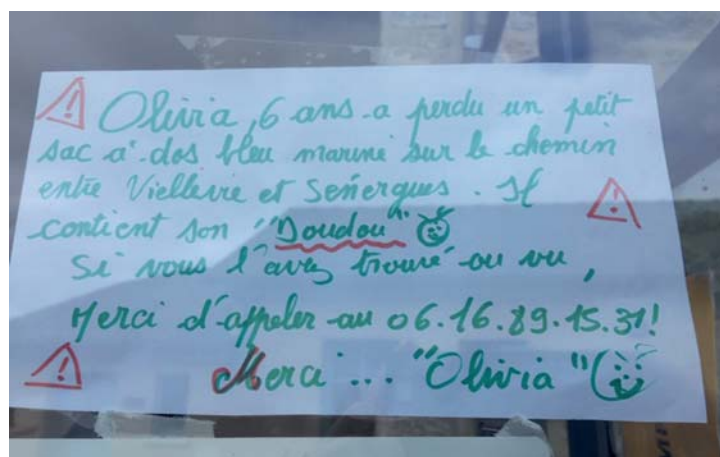 Olivia, 6 ans a perdu un petit
sac à dos bleu marine sur le chemin
entre Vieillevie et Señergues. Il
contient son "Doudou"
Si vous l'avez trouvé ou vu,
Merci d'appeler au 06.16.89.15.31!
Merci ... "Olivia"